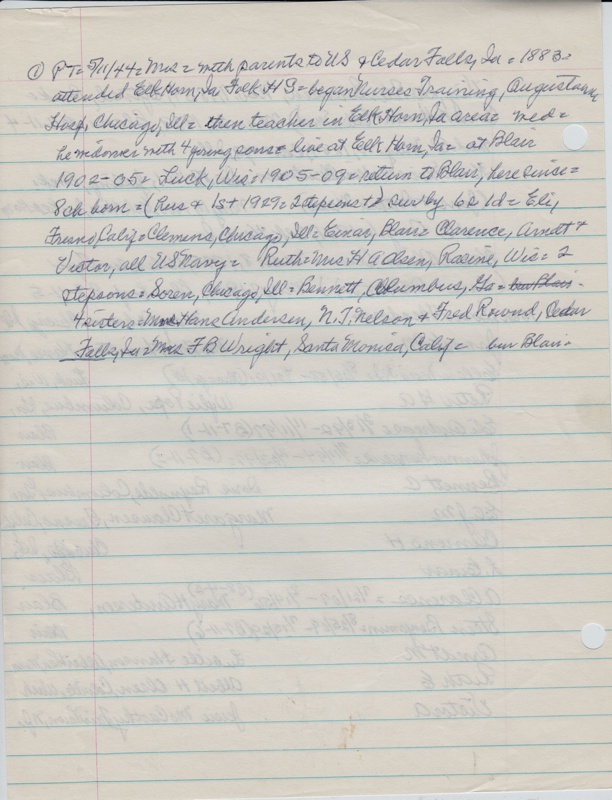 ① PT= 5/11/44= Mrs = with parents to US & Cedar Falls, Ia = 1883=
attended Elk Horn, Ia Folk HS= began Nurses Training, Augustana
Hosp, Chicago, Ill= then teacher in Elk Horn, Ia area= med=
he widower with 4 young sons= live at Elk Horn, Ia= at Blair
1902-05= Luck, Wis= 1905-09= return to Blair, here since=
8 ch born = (Rus & 1st 1929= 2 stepsons †) surv by 6 s 1d= Eli,
Fresno, Calif= Clemens, Chicago, Ill= Einar, Blair= Clarence, Arndt &
Victor, all US Navy= Ruth= Mrs H A Olsen, Racine, Wis= 2
stepsons= Soren, Chicago, Ill= Bennett, Columbus, Ga= bur Blair-
4 sisters= Mmes Hans Andersen, N.T. Nelson & Fred Round, Cedar
Falls, Ia= Mrs F B Wright, Santa Monica, Calif= bur Blair=